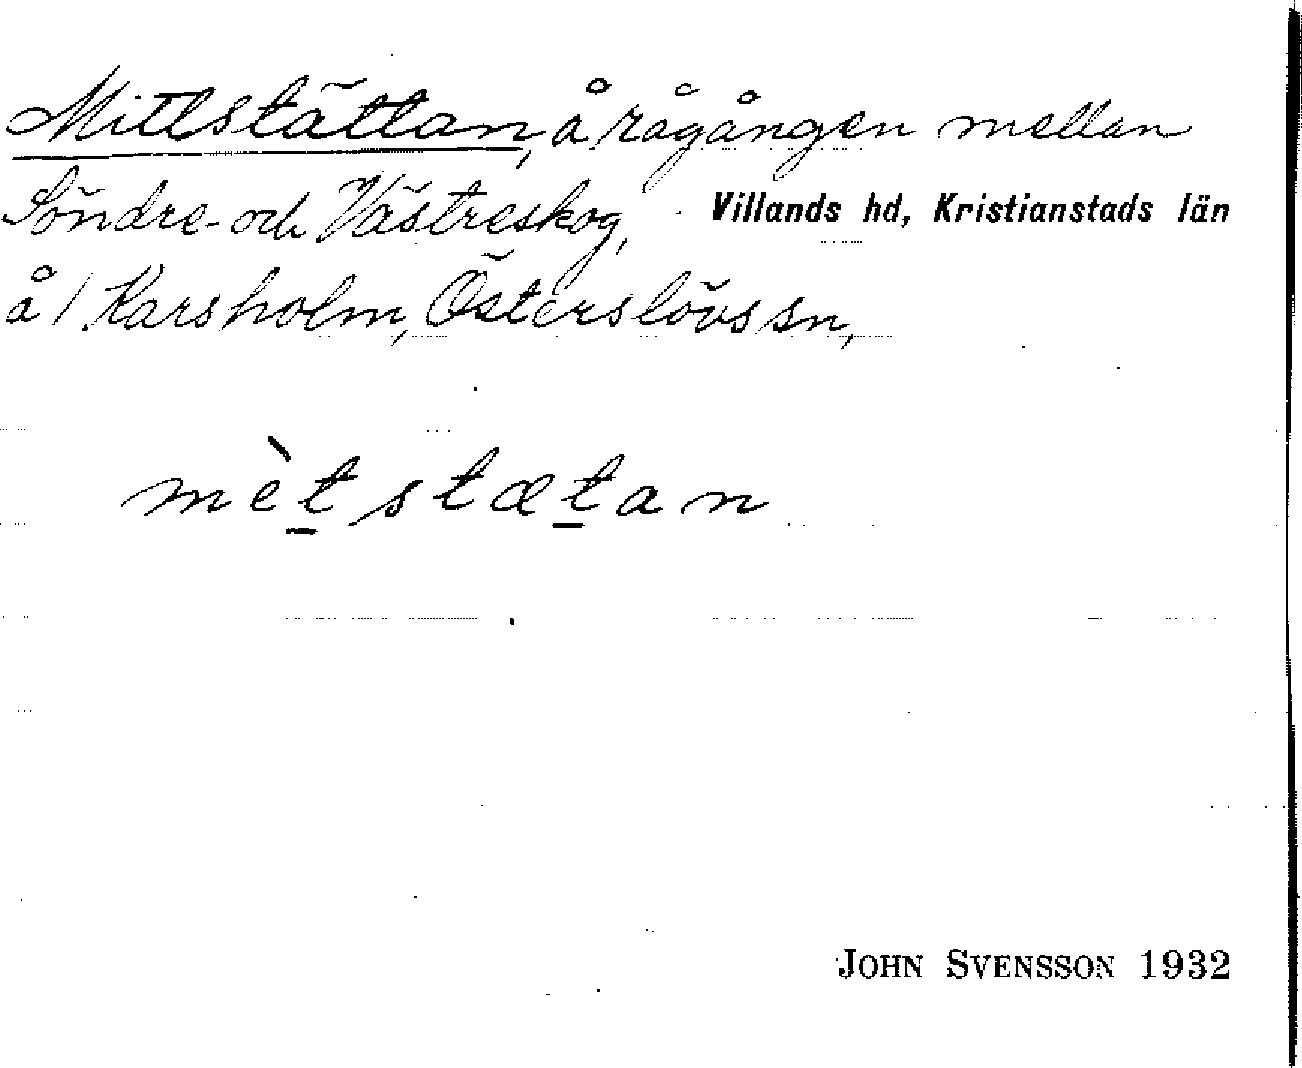 Mittlstättan, å rågången mellan
Söndre- och Västreskog,
Villands hd, Kristianstads län
å 1 Karsholm, Österslövs sn,
mètstætan
JOHN SVENSSON 1932